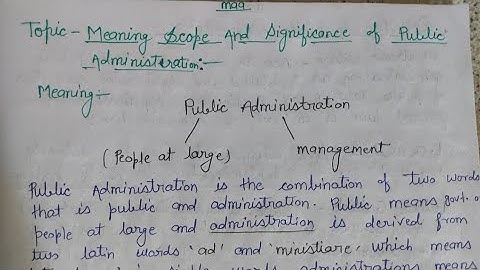 maa
Topic - Meaning Scope And Significance of Public
Administration:-
Meaning:-
Public Administration
(People at large) management
Public Administration is the combination of two words
that is public and administration. Public means govt. or
people at large and administration is derived from
two latin words 'ad' and 'ministiare' which means
words administrations means